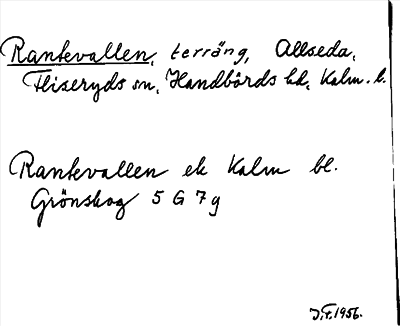 Rankevallen, terräng, Allseda,
Fliseryds sn, Handbörds hd, Kalm. l.
Rankevallen ek Kalm bl.
Grönskog 5 G 7 g
J.F. 1956.